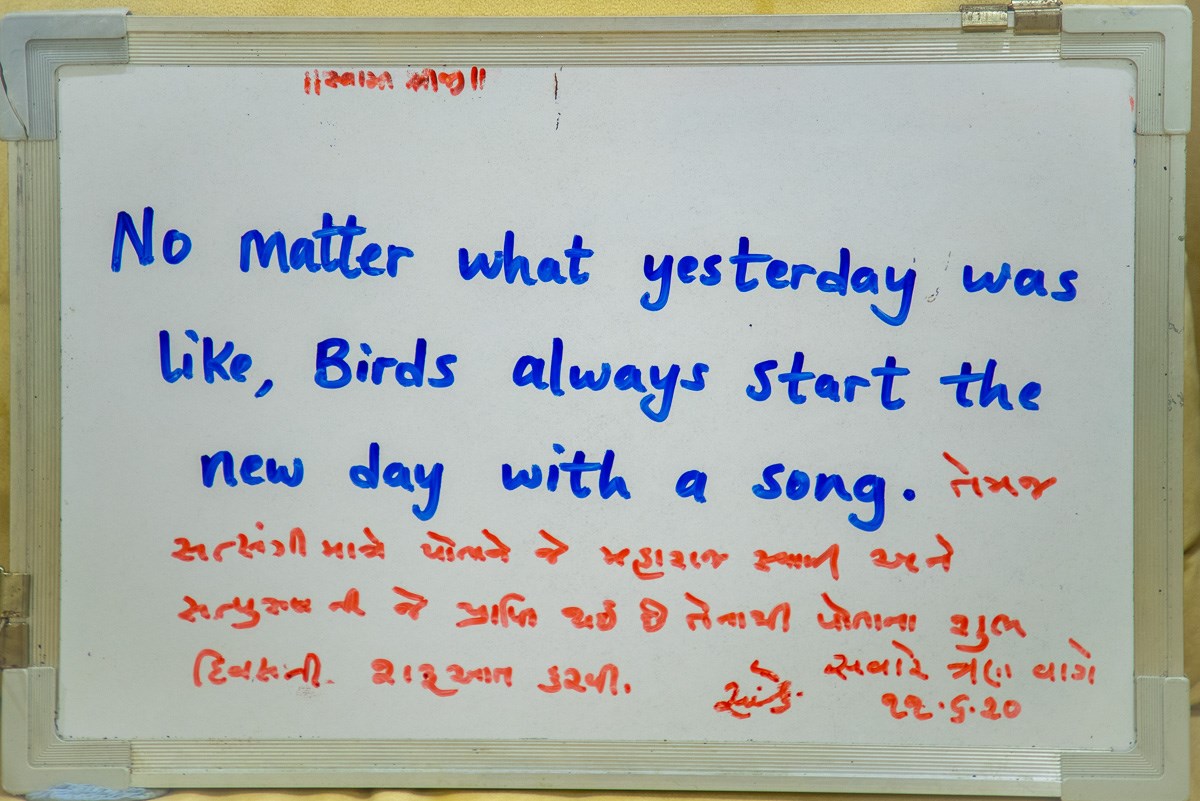 ॥સ્વામી શ્રીજી॥
No matter what yesterday was
like, Birds always start the
new day with a song. તેમજ
સત્સંગી માત્રે પોતાને જે મહારાજ સ્વામી અને
સત્પુરુષ ની જે પ્રાપ્તિ થઈ છે તેનાથી પોતાના શુભ
દિવસની શરૂઆત કરવી.
સવારે ત્રણ વાગે
૨૨.૬.૨૦